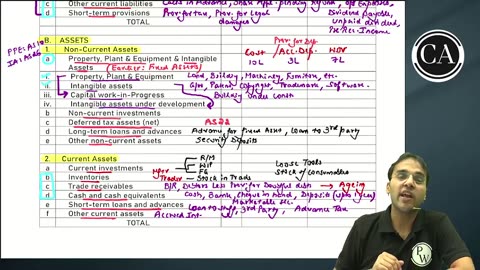 c Other current liabilities
d Short-term provisions Prov for tax, Prov. for legal damages Dividend payable,
unpaid dividend,
Pre Rec. Income
TOTAL
PPE: AS10
IA: AS26
B. ASSETS
1. Non-Current Assets
a Property, Plant & Equipment & Intangible Assets (Earlier: Fixed Assets)
Cost 10L
Prov. for Dep / Acc. Dep. 3L
WDV 7L
i. Property, Plant & Equipment Land, Building, Machinery, Furniture, etc.
ii. Intangible assets Patent, Copyright, Trademark, Software.
iii. Capital work-in-Progress Building under Const
iv. Intangible assets under development
b Non-current investments
c Deferred tax assets (net) AS22
d Long-term loans and advances Advance for Fixed Asset, Loan to 3rd party
e Other non-current assets Security Deposits
2. Current Assets
a Current investments
b Inventories
Trader → Stock in Trade
R/M
WIP
FG
Loose Tools
Stock of Consumables
c Trade receivables B/R, Debtors Less Prov for Doubtful debts → Ageing
d Cash and cash equivalents Cash, Bank, Cheque in Hand, Deposits
Marketable Sec.
e Short-term loans and advances Loan to Staff, 3rd Party, Advance Tax
f Other current assets Accrued Int.
TOTAL
CA
P
W